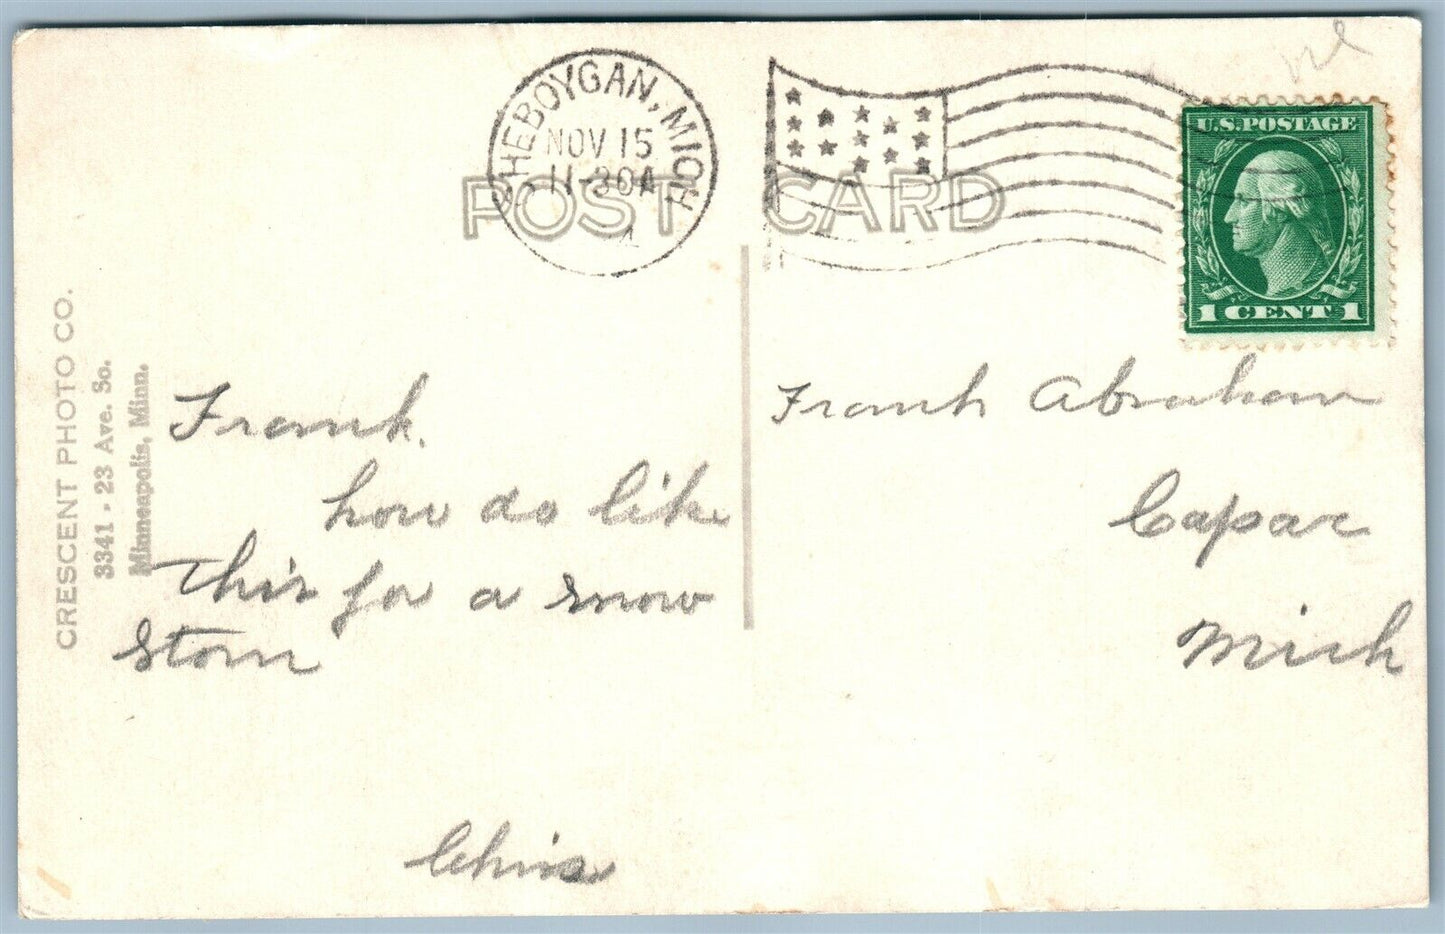 CHEBOYGAN, MICH
NOV 15
11-30A
POST CARD
U.S. POSTAGE
1 CENT 1
CRESCENT PHOTO CO.
3341 - 23 Ave. So.
Minneapolis, Minn.
Frank.
how do like
this for a snow
storm
Chris
Frank Abraham
Capac
Mich